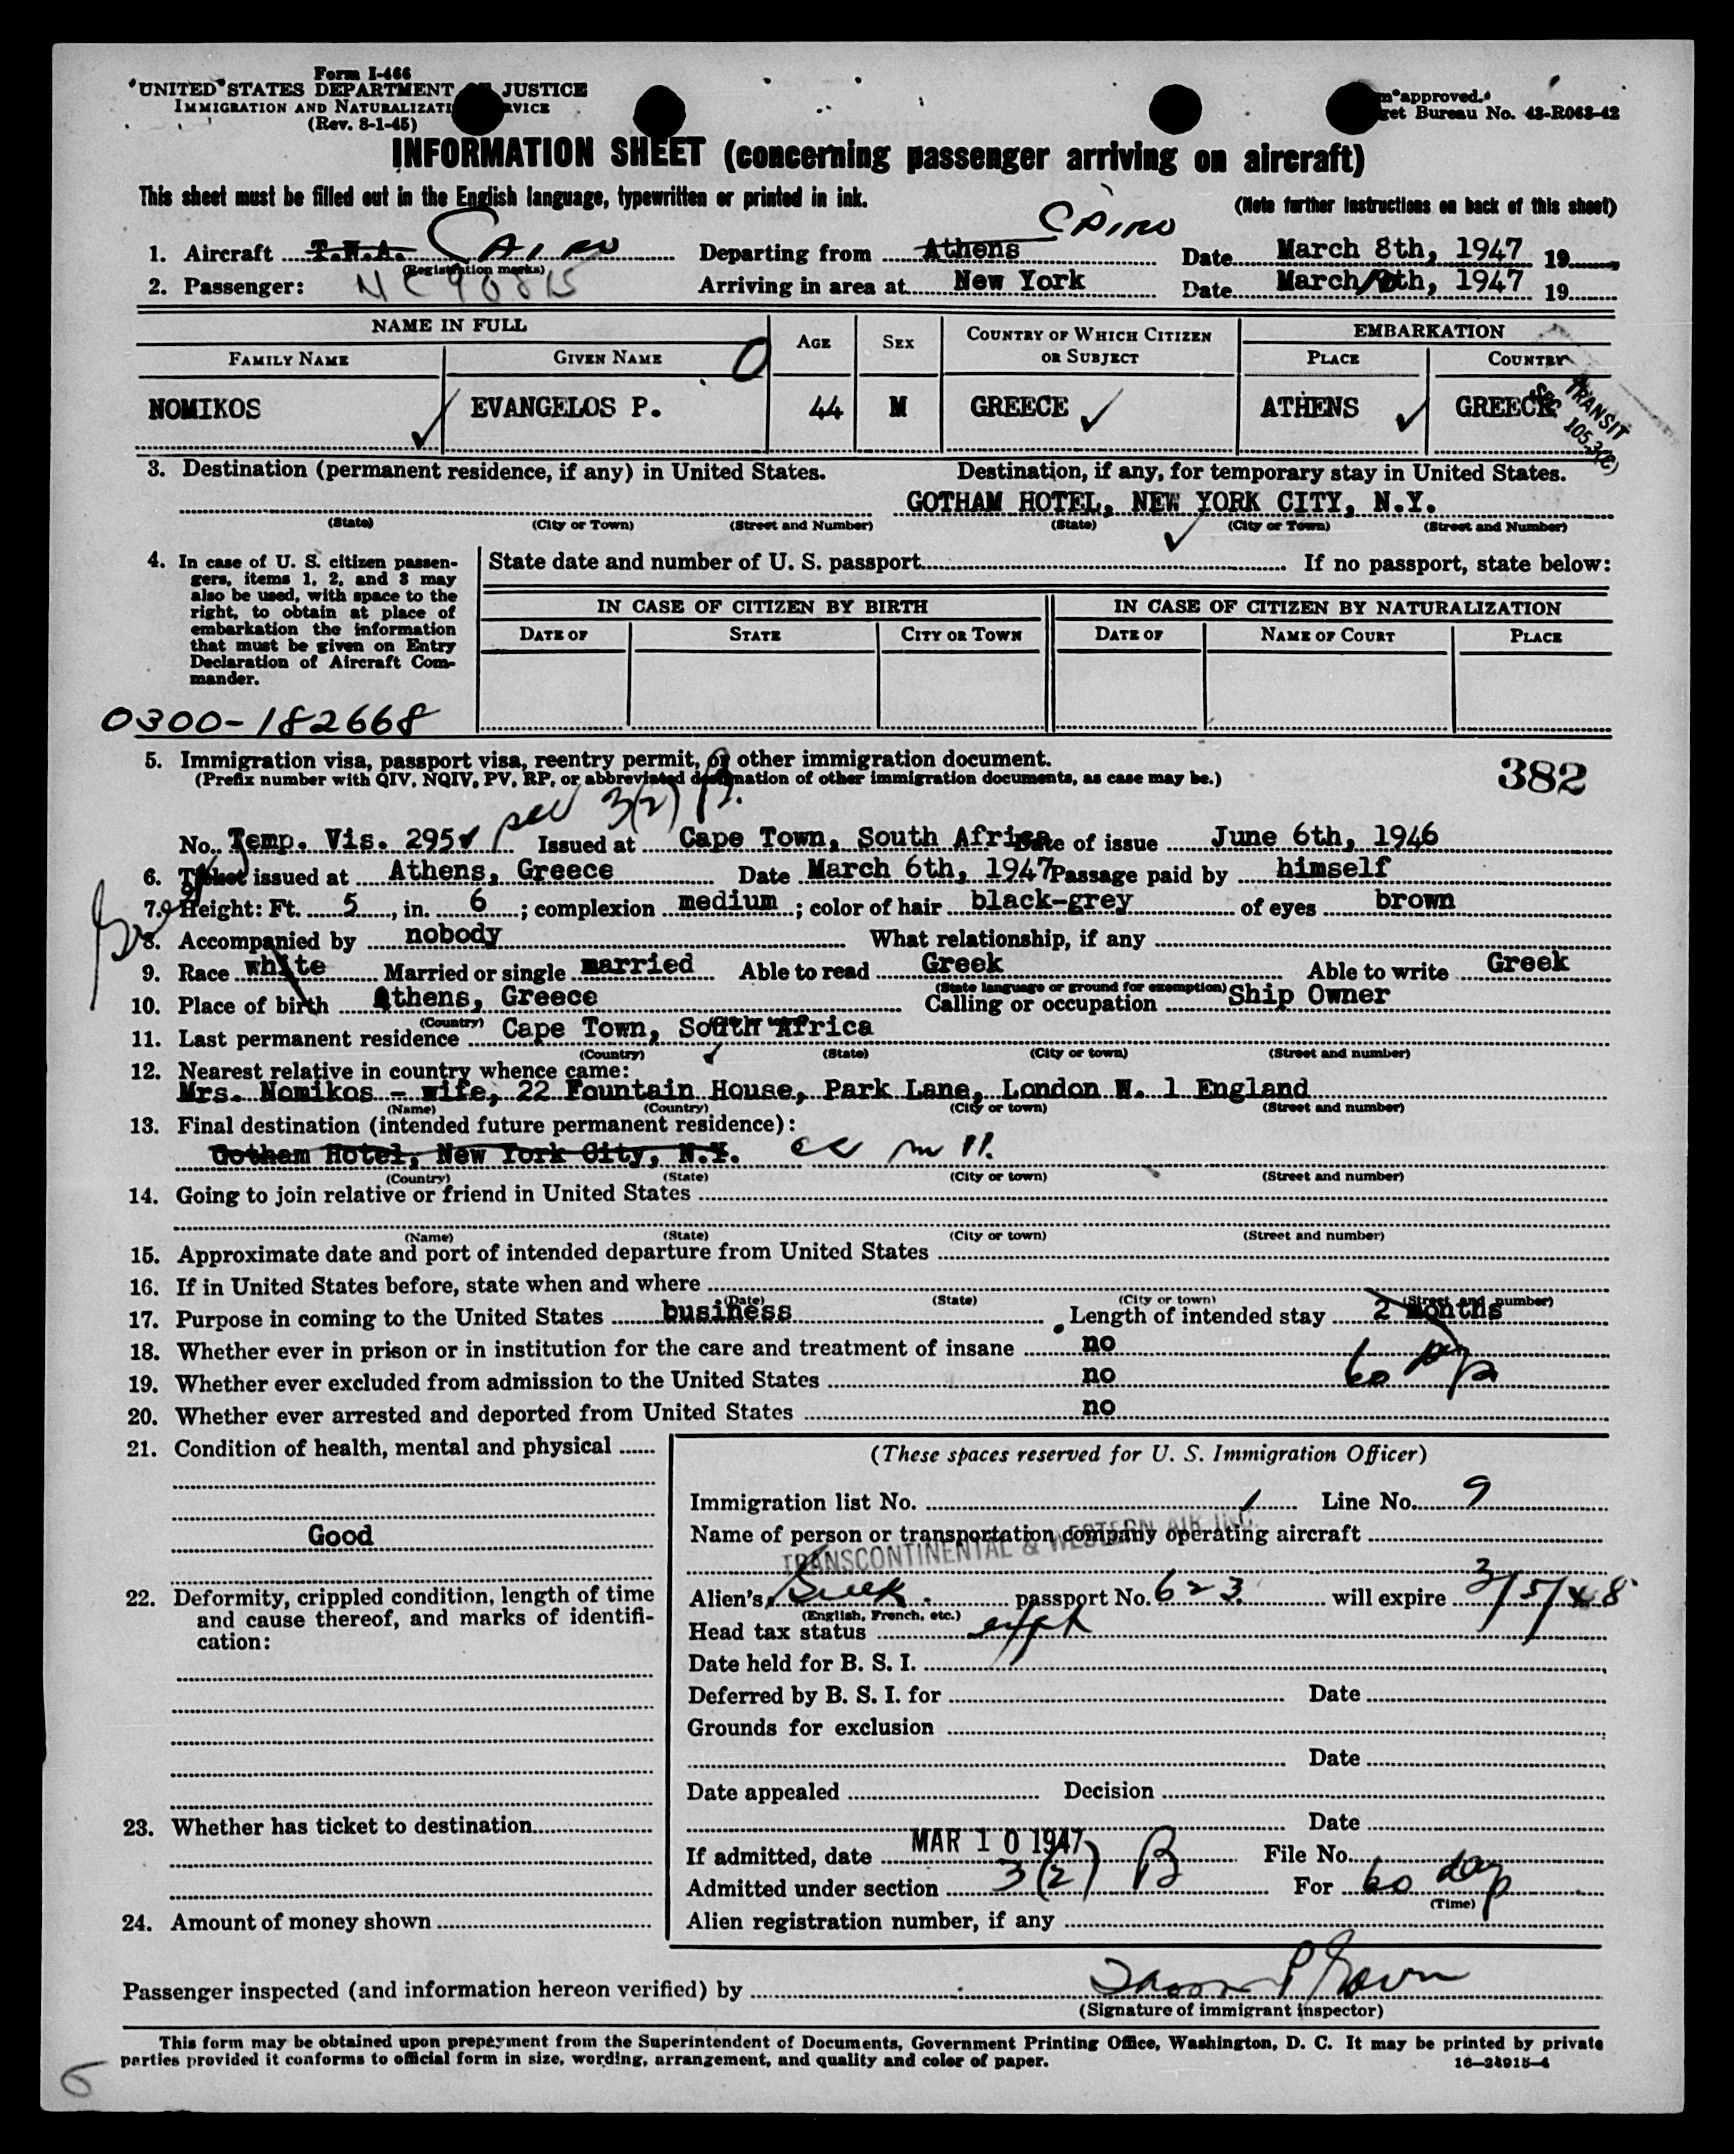 Form I-466
UNITED STATES DEPARTMENT OF JUSTICE
IMMIGRATION AND NATURALIZATION SERVICE
(Rev. 8-1-45)
approved.
Bureau No. 43-R063-42
INFORMATION SHEET (concerning passenger arriving on aircraft)
This sheet must be filled out in the English language, typewritten or printed in ink.
(Note further instructions on back of this sheet)
CAIRO
1. Aircraft T.W.A. CAIRO Departing from Athens Date March 8th, 1947 19
(Registration marks)
2. Passenger: NC90815 Arriving in area at New York Date March 10th, 1947 19
NAME IN FULL AGE SEX COUNTRY OF WHICH CITIZEN OR SUBJECT EMBARKATION
FAMILY NAME GIVEN NAME PLACE COUNTRY
O
NOMIKOS EVANGELOS P. 44 M GREECE ATHENS GREECE
TRANSIT
SEC 105.3(C)
3. Destination (permanent residence, if any) in United States. Destination, if any, for temporary stay in United States.
GOTHAM HOTEL, NEW YORK CITY, N.Y.
(State) (City or Town) (Street and Number) (State) (City or Town) (Street and Number)
4. In case of U. S. citizen passengers, items 1, 2, and 3 may also be used, with space to the right, to obtain at place of embarkation the information that must be given on Entry Declaration of Aircraft Commander.
State date and number of U. S. passport If no passport, state below:
IN CASE OF CITIZEN BY BIRTH IN CASE OF CITIZEN BY NATURALIZATION
DATE OF STATE CITY OR TOWN DATE OF NAME OF COURT PLACE
0300-182668
5. Immigration visa, passport visa, reentry permit, or other immigration document.
(Prefix number with QIV, NQIV, PV, RP, or abbreviated designation of other immigration documents, as case may be.)
382
sec 3(2) B.
No. Temp. Vis. 295 Issued at Cape Town, South Africa Date of issue June 6th, 1946
6. Ticket issued at Athens, Greece Date March 6th, 1947 Passage paid by himself
7. Height: Ft. 5, in. 6; complexion medium; color of hair black-grey of eyes brown
8. Accompanied by nobody What relationship, if any
9. Race white Married or single married Able to read Greek Able to write Greek
(State language or ground for exemption)
10. Place of birth Athens, Greece Calling or occupation Ship Owner
(Country) (City or town)
11. Last permanent residence Cape Town, South Africa
(Country) (State) (City or town) (Street and number)
12. Nearest relative in country whence came:
Mrs. Nomikos - wife, 22 Fountain House, Park Lane, London W. 1 England
(Name) (Country) (City or town) (Street and number)
13. Final destination (intended future permanent residence):
Gotham Hotel, New York City, N.Y.
(Country) (State) (City or town) (Street and number)
14. Going to join relative or friend in United States
(Name) (State) (City or town) (Street and number)
15. Approximate date and port of intended departure from United States
16. If in United States before, state when and where
(Date) (State) (City or town) (Street and number)
17. Purpose in coming to the United States business Length of intended stay 2 months
18. Whether ever in prison or in institution for the care and treatment of insane no
60 days
19. Whether ever excluded from admission to the United States no
20. Whether ever arrested and deported from United States no
21. Condition of health, mental and physical
Good
22. Deformity, crippled condition, length of time and cause thereof, and marks of identification:
23. Whether has ticket to destination
24. Amount of money shown
(These spaces reserved for U. S. Immigration Officer)
Immigration list No. 1 Line No. 9
Name of person or transportation company operating aircraft
TRANSCONTINENTAL & WESTERN AIR INC.
Alien's Greek passport No. 623 will expire 3/5/48
(English, French, etc.)
Head tax status
Date held for B. S. I.
Deferred by B. S. I. for Date
Grounds for exclusion
Date
Date appealed Decision
Date
If admitted, date MAR 10 1947 File No.
Admitted under section 3(2) B For 60 days
(Time)
Alien registration number, if any
Passenger inspected (and information hereon verified) by
(Signature of immigrant inspector)
This form may be obtained upon prepayment from the Superintendent of Documents, Government Printing Office, Washington, D. C. It may be printed by private
parties provided it conforms to official form in size, wording, arrangement, and quality and color of paper.
16-24915-4